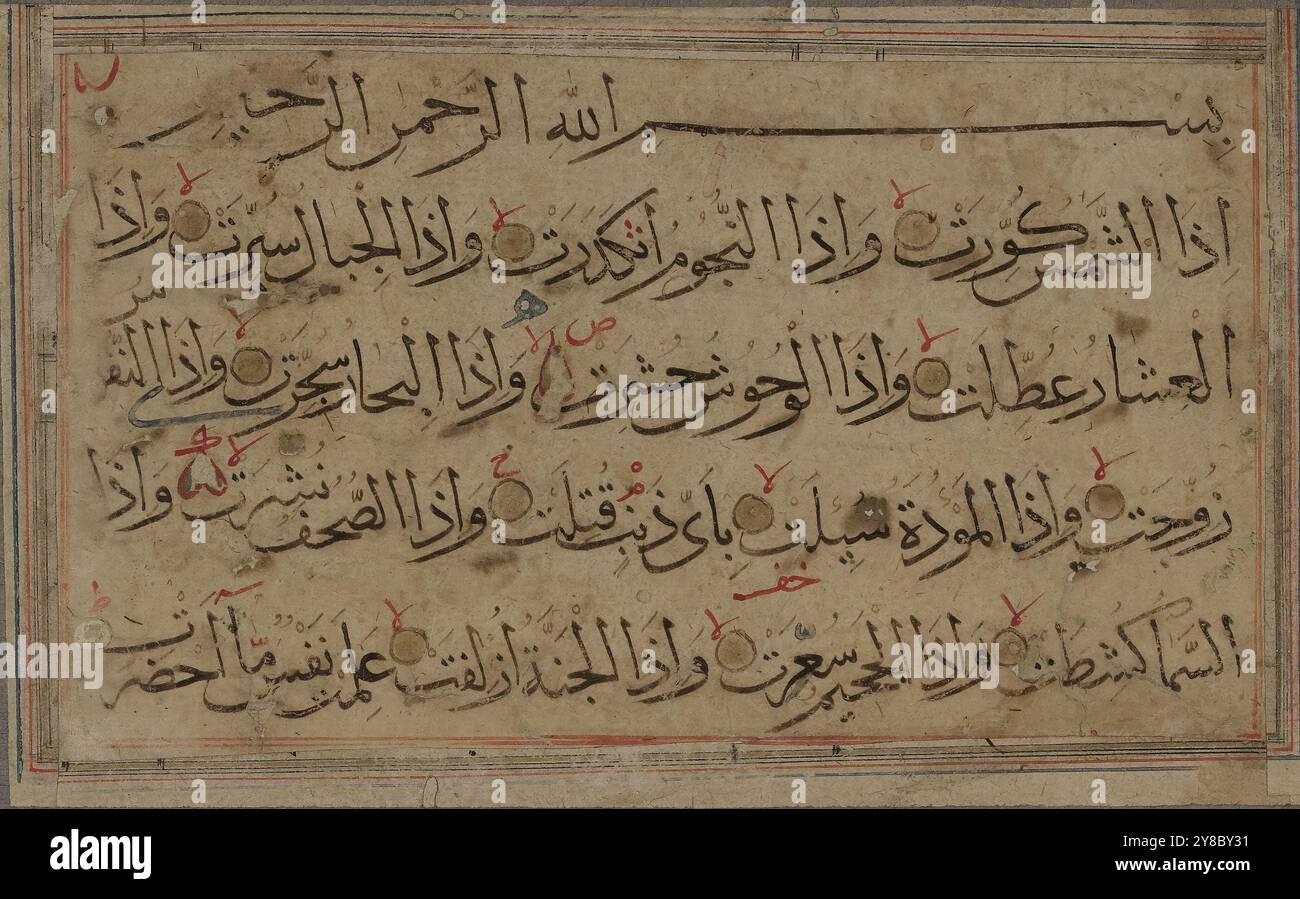 بِسْـــمِ اللّٰهِ الرَّحْمٰنِ الرَّحِيمِ
اِذَا الشَّمْسُ كُوِّرَتْ لا وَاِذَا النُّجُومُ انْكَدَرَتْ لا وَاِذَا الْجِبَالُ سُيِّرَتْ لا وَاِذَا
الْعِشَارُ عُطِّلَتْ لا وَاِذَا الْوُحُوشُ حُشِرَتْ لا ص وَاِذَا الْبِحَارُ سُجِّرَتْ لا وَاِذَا النُّفُوسُ
زُوِّجَتْ لا وَاِذَا الْمَوْءُدَةُ سُئِلَتْ لا بِاَىِّ ذَنْبٍ قُتِلَتْ ج وَاِذَا الصُّحُفُ نُشِرَتْ لا وَاِذَا
السَّمَا كُشِطَتْ لا وَاِذَا الْجَحِيمُ سُعِّرَتْ لا وَاِذَا الْجَنَّةُ اُزْلِفَتْ لا عَلِمَتْ نَفْسٌ مَّآ اَحْضَرَتْ ط
alamy
Image ID: 2Y8BY31
www.alamy.com